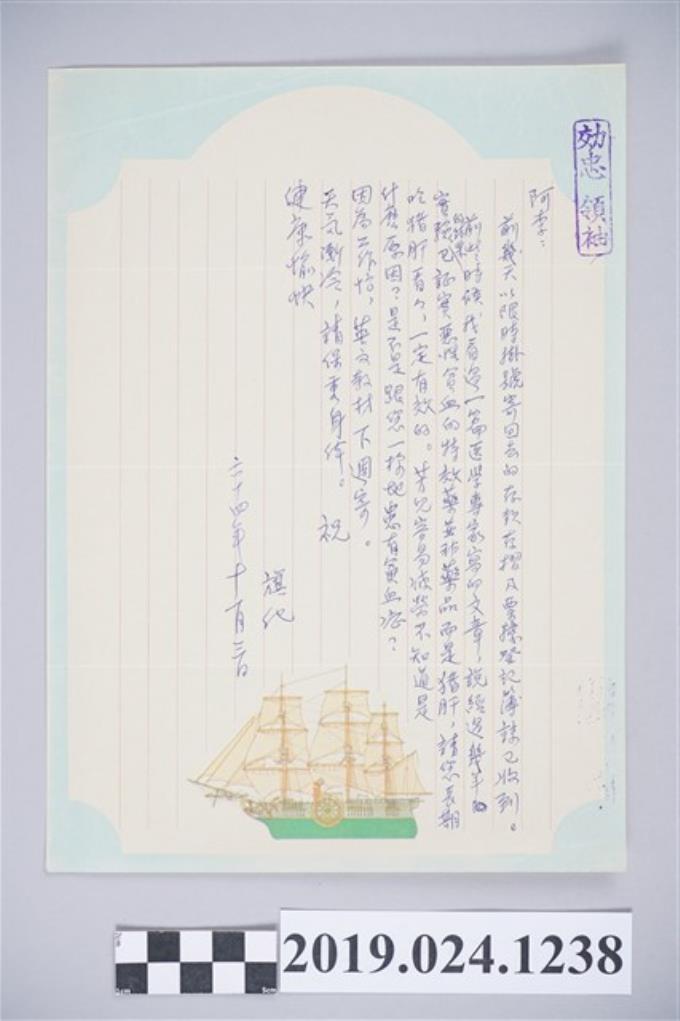 効忠領袖
阿李：
前幾天以限時掛號寄回去的存款存摺及票據登記簿諒已收到。
前些時候我看過一篇医學專家寫的文章，說經過幾年的
實驗的結果已証實惡性貧血的特效藥並非藥品而是猪肝，請您長期
吃猪肝看看，一定有效的。芳兒容易疲勞不知道是
什麼原因？是不是跟您一樣地患有貧血症？
因為工作忙，英文教材下週寄。
天氣漸冷，請保重身体。祝
健康愉快
旗化
六十四年十一月三日
2019.024.1238